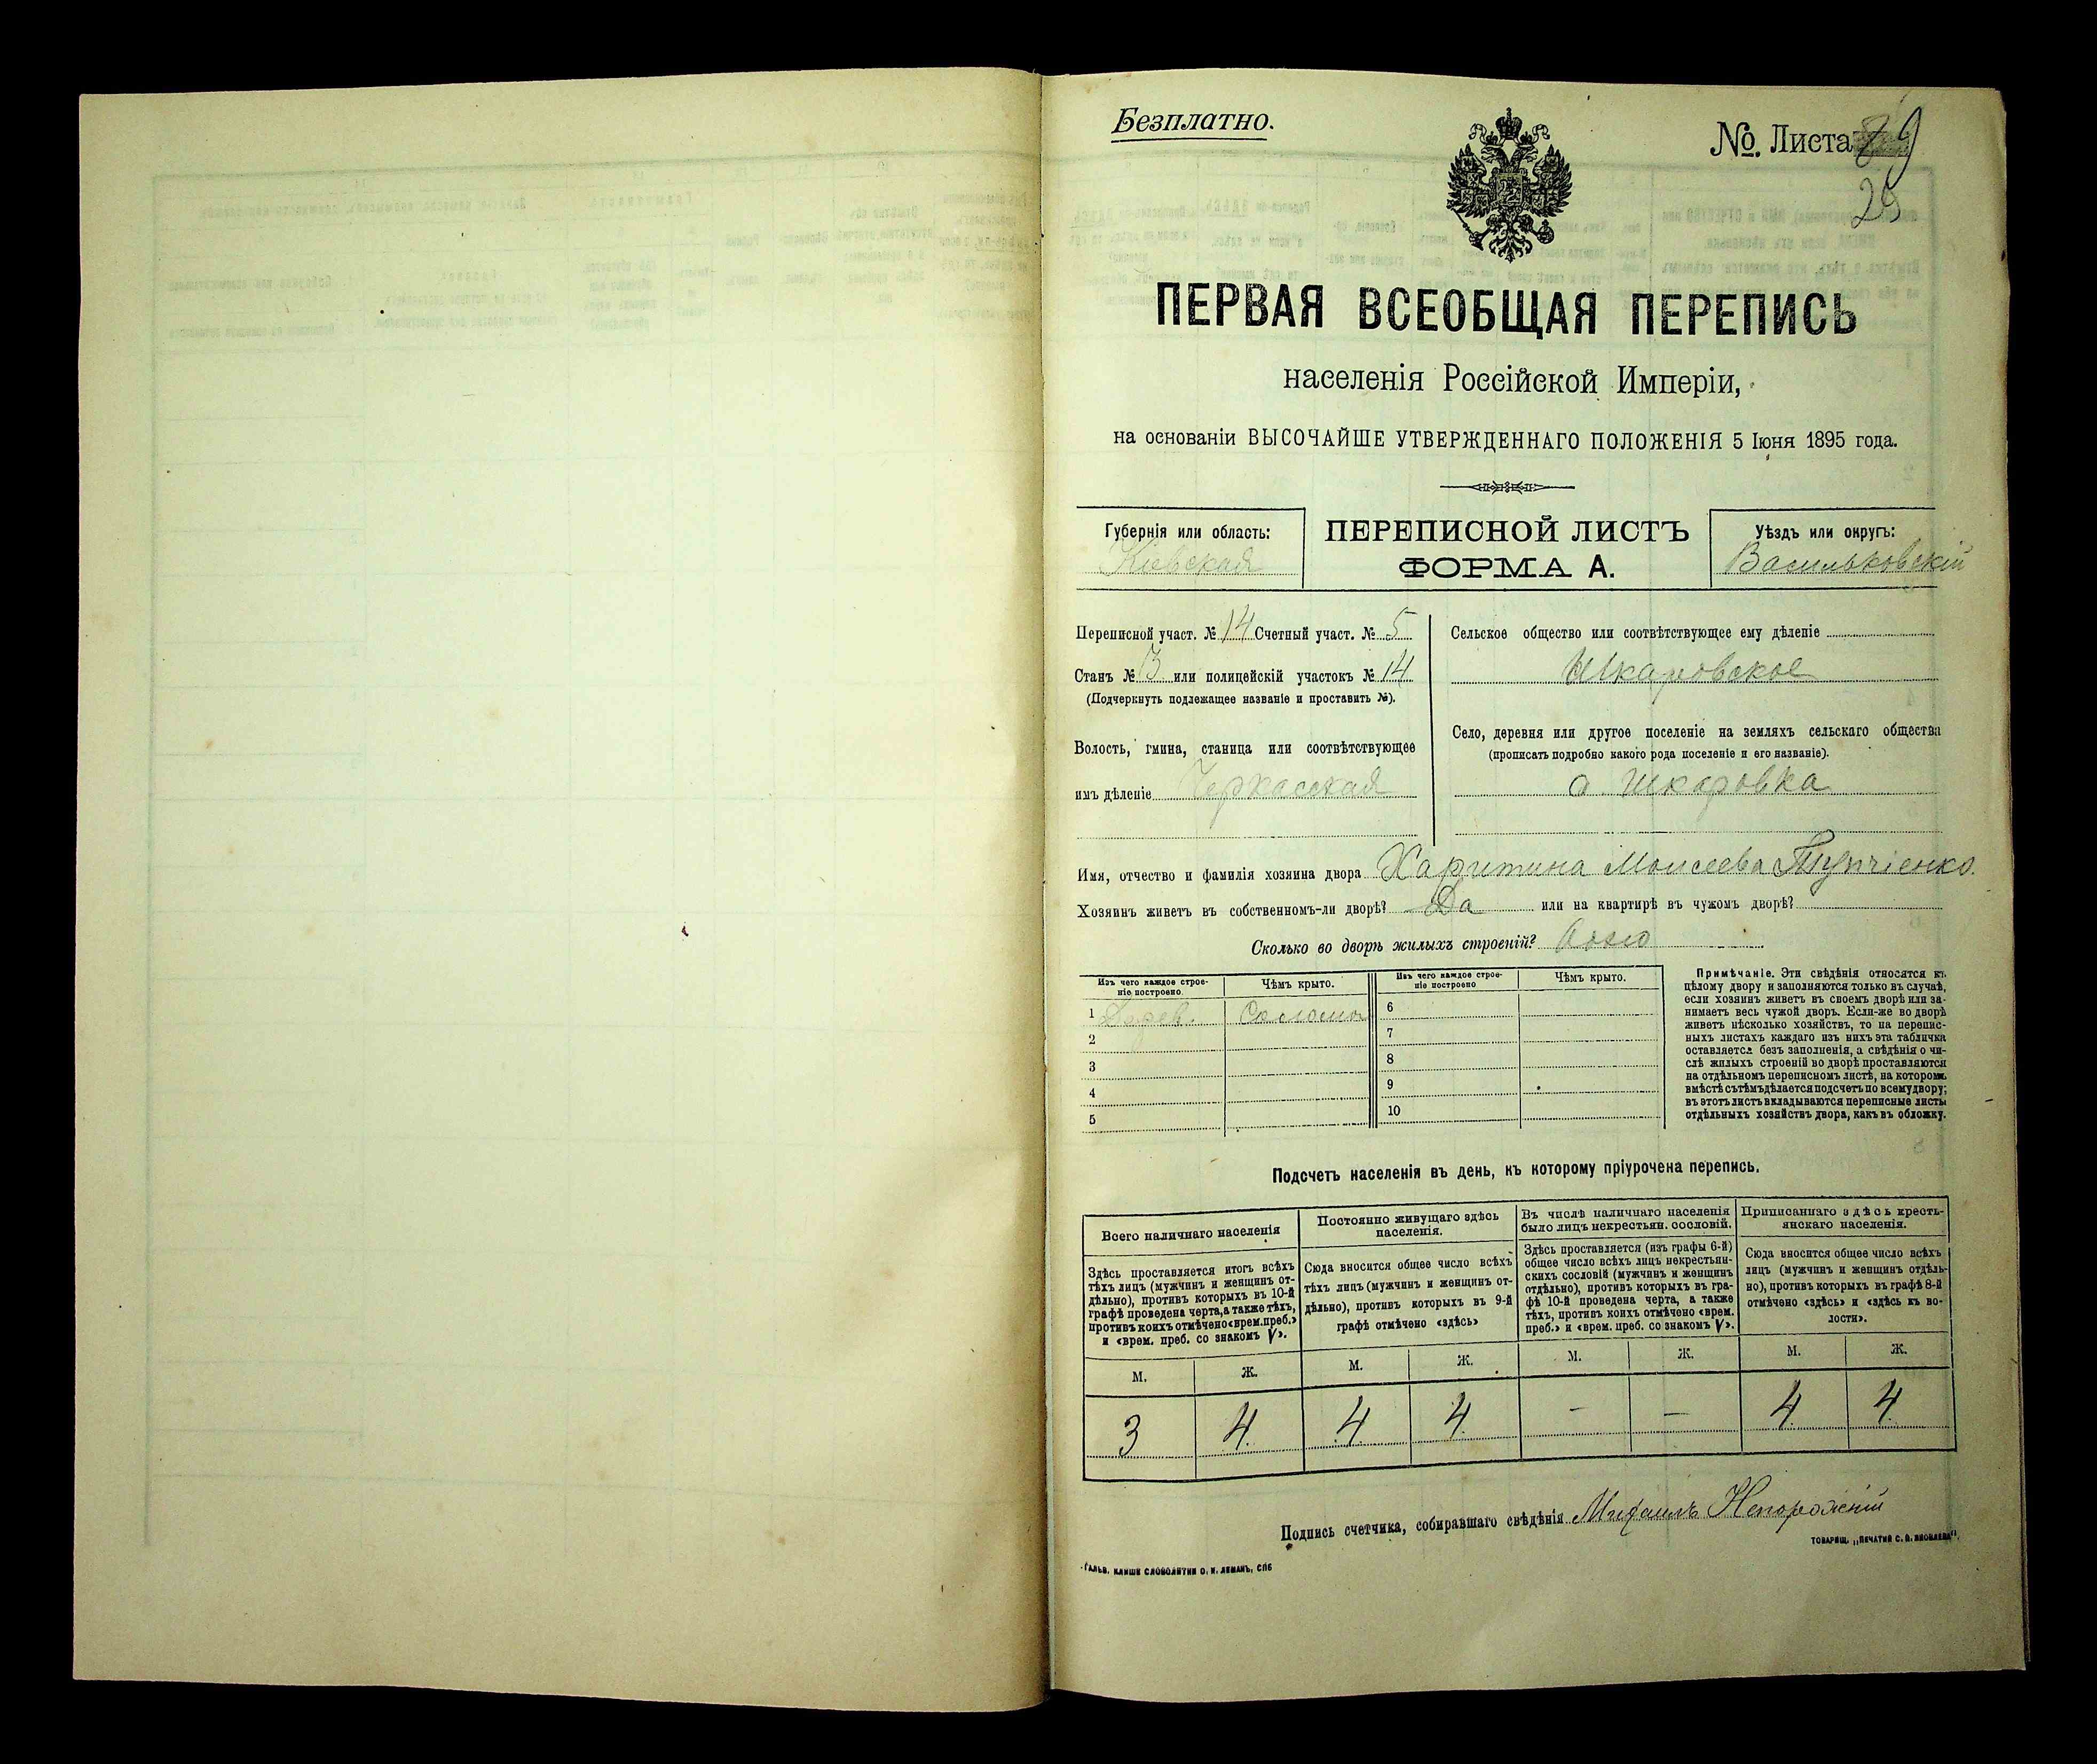 Безплатно.
№ Листа 89
29
ПЕРВАЯ ВСЕОБЩАЯ ПЕРЕПИСЬ
населенія Россійской Имперіи,
на основаніи ВЫСОЧАЙШЕ УТВЕРЖДЕННАГО ПОЛОЖЕНІЯ 5 Іюня 1895 года.
Губернія или область:
Кіевская
ПЕРЕПИСНОЙ ЛИСТЪ
ФОРМА А.
Уѣздъ или округъ:
Васильковскій
Переписной участ. № 14 Счетный участ. № 5
Станъ № 3 или полицейскій участокъ № 14
(Подчеркнуть подлежащее названіе и проставить №).
Волость, гмина, станица или соотвѣтствующее
имъ дѣленіе Черкасская
Сельское общество или соотвѣтствующее ему дѣленіе
Шкаровское
Село, деревня или другое поселеніе на земляхъ сельскаго общества
(прописать подробно какого рода поселеніе и его названіе).
с. Шкаровка
Имя, отчество и фамилія хозяина двора Харитина Моисеева
Хозяинъ живетъ въ собственномъ-ли дворѣ? Да или на квартирѣ въ чужомъ дворѣ?
Сколько во дворѣ жилыхъ строеній? Одно
Изъ чего каждое строе-
ніе построено.
Чѣмъ крыто.
Изъ чего каждое строе-
ніе построено
Чѣмъ крыто.
1 Дерев. Солома
2
3
4
5
6
7
8
9
10
Примѣчаніе. Эти свѣдѣнія относятся къ
цѣлому двору и заполняются только въ случаѣ,
если хозяинъ живетъ въ своемъ дворѣ или за-
нимаетъ весь чужой дворъ. Если-же во дворѣ
живетъ нѣсколько хозяйствъ, то на перепис-
ныхъ листахъ каждаго изъ нихъ эта табличка
оставляется безъ заполненія, а свѣдѣнія о чи-
слѣ жилыхъ строеній во дворѣ проставляются
на отдѣльномъ переписномъ листѣ, на которомъ
вмѣстѣ съ тѣмъ дѣлается подсчетъ по всему двору;
въ этотъ листъ вкладываются переписные листы
отдѣльныхъ хозяйствъ двора, какъ въ обложку.
Подсчетъ населенія въ день, къ которому пріурочена перепись.
Всего наличнаго населенія
Здѣсь проставляется итогъ всѣхъ
тѣхъ лицъ (мужчинъ и женщинъ от-
дѣльно), противъ которыхъ въ 10-й
графѣ проведена черта, а также тѣхъ,
противъ коихъ отмѣчено «врем. преб.»
и «врем. преб. со знакомъ V».
Постоянно живущаго здѣсь
населенія.
Сюда вносится общее число всѣхъ
тѣхъ лицъ (мужчинъ и женщинъ от-
дѣльно), противъ которыхъ въ 9-й
графѣ отмѣчено «здѣсь»
Въ числѣ наличнаго населенія
было лицъ некрестьян. сословій.
Здѣсь проставляется (изъ графы 6-й)
общее число всѣхъ лицъ некрестьян-
скихъ сословій (мужчинъ и женщинъ
отдѣльно), противъ которыхъ въ гра-
фѣ 10-й проведена черта, а также
тѣхъ, противъ коихъ отмѣчено «врем.
преб.» и «врем. преб. со знакомъ V».
Приписаннаго здѣсь кресть-
янскаго населенія.
Сюда вносится общее число всѣхъ
лицъ (мужчинъ и женщинъ отдѣль-
но), противъ которыхъ въ графѣ 8-й
отмѣчено «здѣсь» и «здѣсь къ во-
лости».
М. Ж. М. Ж. М. Ж. М. Ж.
3 4 4 4 — — 4 4
Подпись счетчика, собиравшаго свѣдѣнія Михаилъ Непорожній
ТОВАРИЩ. „ПЕЧАТНЯ С. П. ЯКОВЛЕВА".
ГАЛЬВ. КЛИШЕ СЛОВОЛИТНИ О. И. ЛЕМАНЪ, СПБ